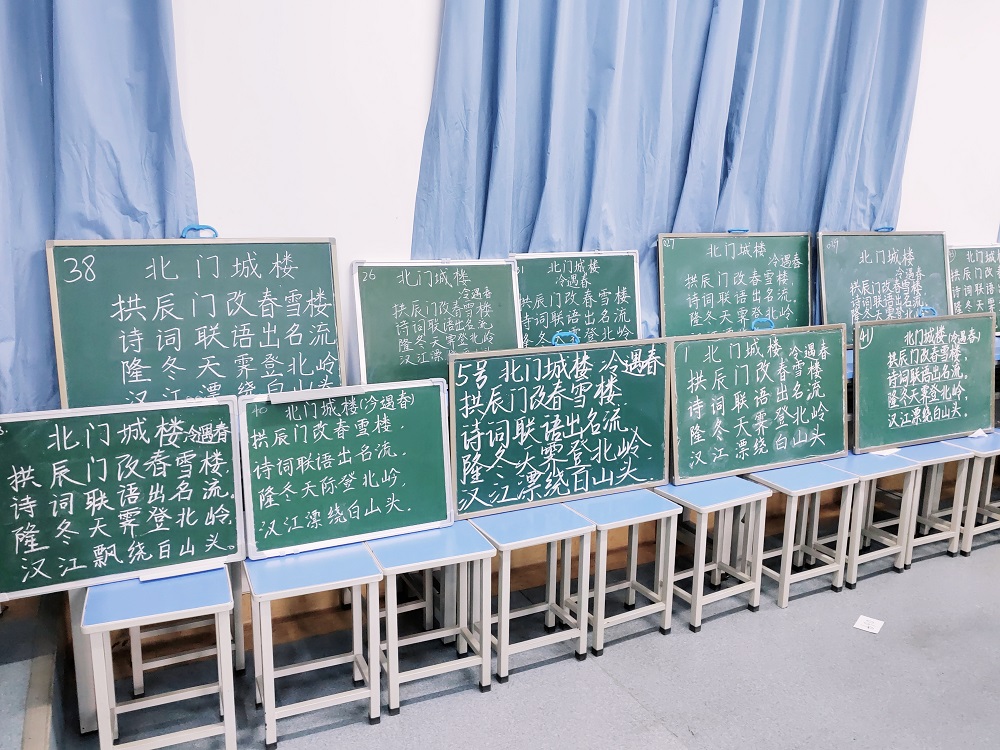 38 北门城楼
拱辰门改春雪楼
诗词联语出名流
隆冬天霁登北岭
汉江漂绕白山头
26 北门城楼
冷遇春
拱辰门改春雪楼,
诗词联语出名流
隆冬天霁登北岭
汉江漂绕
北门城楼
冷遇春
拱辰门改春雪楼
诗词联语出名流,
隆冬天霁登北岭
027 北门城楼
拱辰门改春雪楼,
诗词联语出名流,
隆冬天霁登北岭
北门城楼
冷遇春
拱辰门改春雪楼
诗词联语出名流
隆冬天霁登北岭
北门城
拱辰门改
诗词联语出
隆冬天霁登
北门城楼冷遇春
拱辰门改春雪楼,
诗词联语出名流.
隆冬天霁登北岭,
汉江飘绕白山头。
40 北门城楼(冷遇春)
拱辰门改春雪楼.
诗词联语出名流.
隆冬天际登北岭.
汉江漂绕白山头.
5号 北门城楼 冷遇春
拱辰门改春雪楼.
诗词联语出名流.
隆冬天霁登北岭
汉江漂绕白山头.
1 北门城楼 冷遇春
拱辰门改春雪楼
诗词联语出名流
隆冬天霁登北岭
汉江漂绕白山头
44 北门城楼(冷遇春)
拱辰门改春雪楼,
诗词联语出名流.
隆冬天霁登北岭,
汉江漂绕白山头.